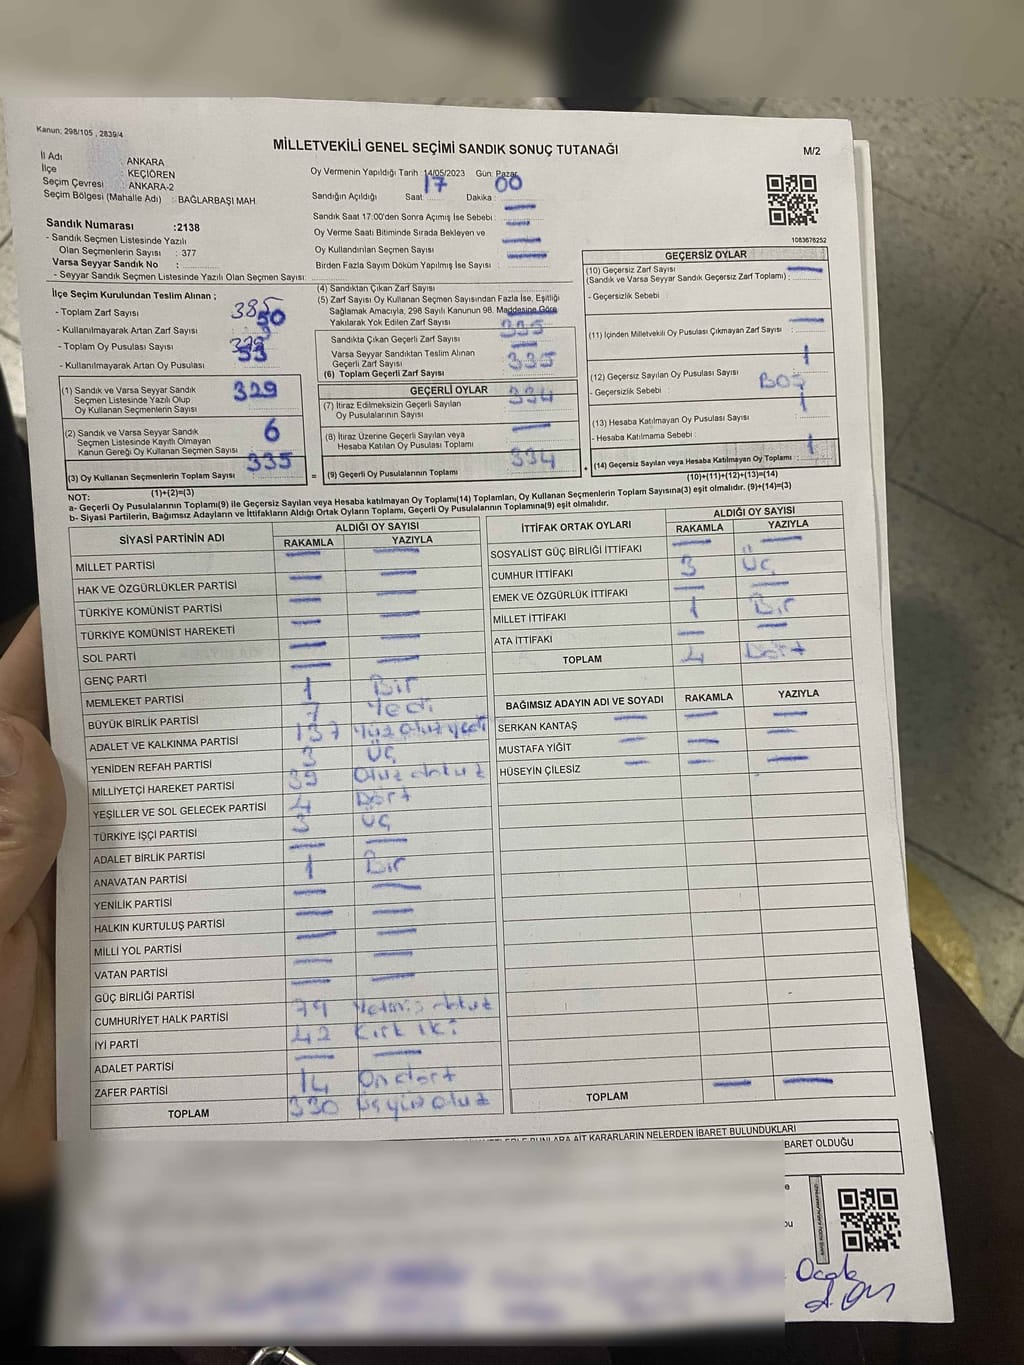 Kanun; 298/105 , 2839/4
MİLLETVEKİLİ GENEL SEÇİMİ SANDIK SONUÇ TUTANAĞI
M/2
İl Adı : ANKARA
İlçe : KEÇİÖREN
Seçim Çevresi : ANKARA-2
Seçim Bölgesi (Mahalle Adı) : BAĞLARBAŞI MAH.
Sandık Numarası :2138
- Sandık Seçmen Listesinde Yazılı
Olan Seçmenlerin Sayısı : 377
Varsa Seyyar Sandık No :
- Seyyar Sandık Seçmen Listesinde Yazılı Olan Seçmen Sayısı:
Oy Vermenin Yapıldığı Tarih : 14/05/2023 Gün: Pazar
Sandığın Açıldığı Saat : 17 Dakika : 00
Sandık Saat 17:00'den Sonra Açımış İse Sebebi : —
Oy Verme Saati Bitiminde Sırada Bekleyen ve —
Oy Kullandırılan Seçmen Sayısı —
Birden Fazla Sayım Döküm Yapılmış İse Sayısı : —
1083676252
İlçe Seçim Kurulundan Teslim Alınan ;
- Toplam Zarf Sayısı : 385
- Kullanılmayarak Artan Zarf Sayısı : 50
- Toplam Oy Pusulası Sayısı :
- Kullanılmayarak Artan Oy Pusulası : 53
(1) Sandık ve Varsa Seyyar Sandık
Seçmen Listesinde Yazılı Olup
Oy Kullanan Seçmenlerin Sayısı 329
(2) Sandık ve Varsa Seyyar Sandık
Seçmen Listesinde Kayıtlı Olmayan
Kanun Gereği Oy Kullanan Seçmen Sayısı 6
(3) Oy Kullanan Seçmenlerin Toplam Sayısı 335
(1)+(2)=(3)
(4) Sandıktan Çıkan Zarf Sayısı
(5) Zarf Sayısı Oy Kullanan Seçmen Sayısından Fazla İse, Eşitliği
Sağlamak Amacıyla, 298 Sayılı Kanunun 98. Maddesine Göre
Yakılarak Yok Edilen Zarf Sayısı —
Sandıkta Çıkan Geçerli Zarf Sayısı 335
Varsa Seyyar Sandıktan Teslim Alınan
Geçerli Zarf Sayısı —
(6) Toplam Geçerli Zarf Sayısı 335
GEÇERLİ OYLAR
(7) İtiraz Edilmeksizin Geçerli Sayılan
Oy Pusulalarının Sayısı 334
(8) İtiraz Üzerine Geçerli Sayılan veya
Hesaba Katılan Oy Pusulası Toplamı —
= (9) Geçerli Oy Pusulalarının Toplamı 334
GEÇERSİZ OYLAR
(10) Geçersiz Zarf Sayısı
(Sandık ve Varsa Seyyar Sandık Geçersiz Zarf Toplamı) : —
- Geçersizlik Sebebi :
(11) İçinden Milletvekili Oy Pusulası Çıkmayan Zarf Sayısı : —
(12) Geçersiz Sayılan Oy Pusulası Sayısı : 1
- Geçersizlik Sebebi : BOŞ
(13) Hesaba Katılmayan Oy Pusulası Sayısı
- Hesaba Katılmama Sebebi :
+ (14) Geçersiz Sayılan veya Hesaba Katılmayan Oy Toplamı : 1
(10)+(11)+(12)+(13)=(14)
NOT:
a- Geçerli Oy Pusulalarının Toplamı(9) ile Geçersiz Sayılan veya Hesaba katılmayan Oy Toplamı(14) Toplamları, Oy Kullanan Seçmenlerin Toplam Sayısına(3) eşit olmalıdır. (9)+(14)=(3)
b- Siyasi Partilerin, Bağımsız Adayların ve İttifakların Aldığı Ortak Oyların Toplamı, Geçerli Oy Pusulalarının Toplamına(9) eşit olmalıdır.
SİYASİ PARTİNİN ADI ALDIĞI OY SAYISI
RAKAMLA YAZIYLA
MİLLET PARTİSİ — —
HAK VE ÖZGÜRLÜKLER PARTİSİ — —
TÜRKİYE KOMÜNİST PARTİSİ — —
TÜRKİYE KOMÜNİST HAREKETİ — —
SOL PARTİ — —
GENÇ PARTİ — —
MEMLEKET PARTİSİ 1 Bir
BÜYÜK BİRLİK PARTİSİ 7 Yedi
ADALET VE KALKINMA PARTİSİ 137 Yüz otuz yedi
YENİDEN REFAH PARTİSİ 3 Üç
MİLLİYETÇİ HAREKET PARTİSİ 39 Otuz dokuz
YEŞİLLER VE SOL GELECEK PARTİSİ 4 Dört
TÜRKİYE İŞÇİ PARTİSİ 3 Üç
ADALET BİRLİK PARTİSİ — —
ANAVATAN PARTİSİ 1 Bir
YENİLİK PARTİSİ — —
HALKIN KURTULUŞ PARTİSİ — —
MİLLİ YOL PARTİSİ — —
VATAN PARTİSİ — —
GÜÇ BİRLİĞİ PARTİSİ — —
CUMHURİYET HALK PARTİSİ 79 Yetmiş dokuz
İYİ PARTİ 42 Kırk iki
ADALET PARTİSİ — —
ZAFER PARTİSİ 14 On dört
TOPLAM 330 üçyüz otuz
İTTİFAK ORTAK OYLARI ALDIĞI OY SAYISI
RAKAMLA YAZIYLA
SOSYALİST GÜÇ BİRLİĞİ İTTİFAKI — —
CUMHUR İTTİFAKI 3 Üç
EMEK VE ÖZGÜRLÜK İTTİFAKI — —
MİLLET İTTİFAKI 1 Bir
ATA İTTİFAKI — —
TOPLAM 4 Dört
BAĞIMSIZ ADAYIN ADI VE SOYADI RAKAMLA YAZIYLA
SERKAN KANTAŞ — — —
MUSTAFA YİĞİT — — —
HÜSEYİN ÇİLESİZ — — —
TOPLAM — —
AİT KARARLARIN NELERDEN İBARET BULUNDUKLARI
BARET OLDUĞU
Ocak